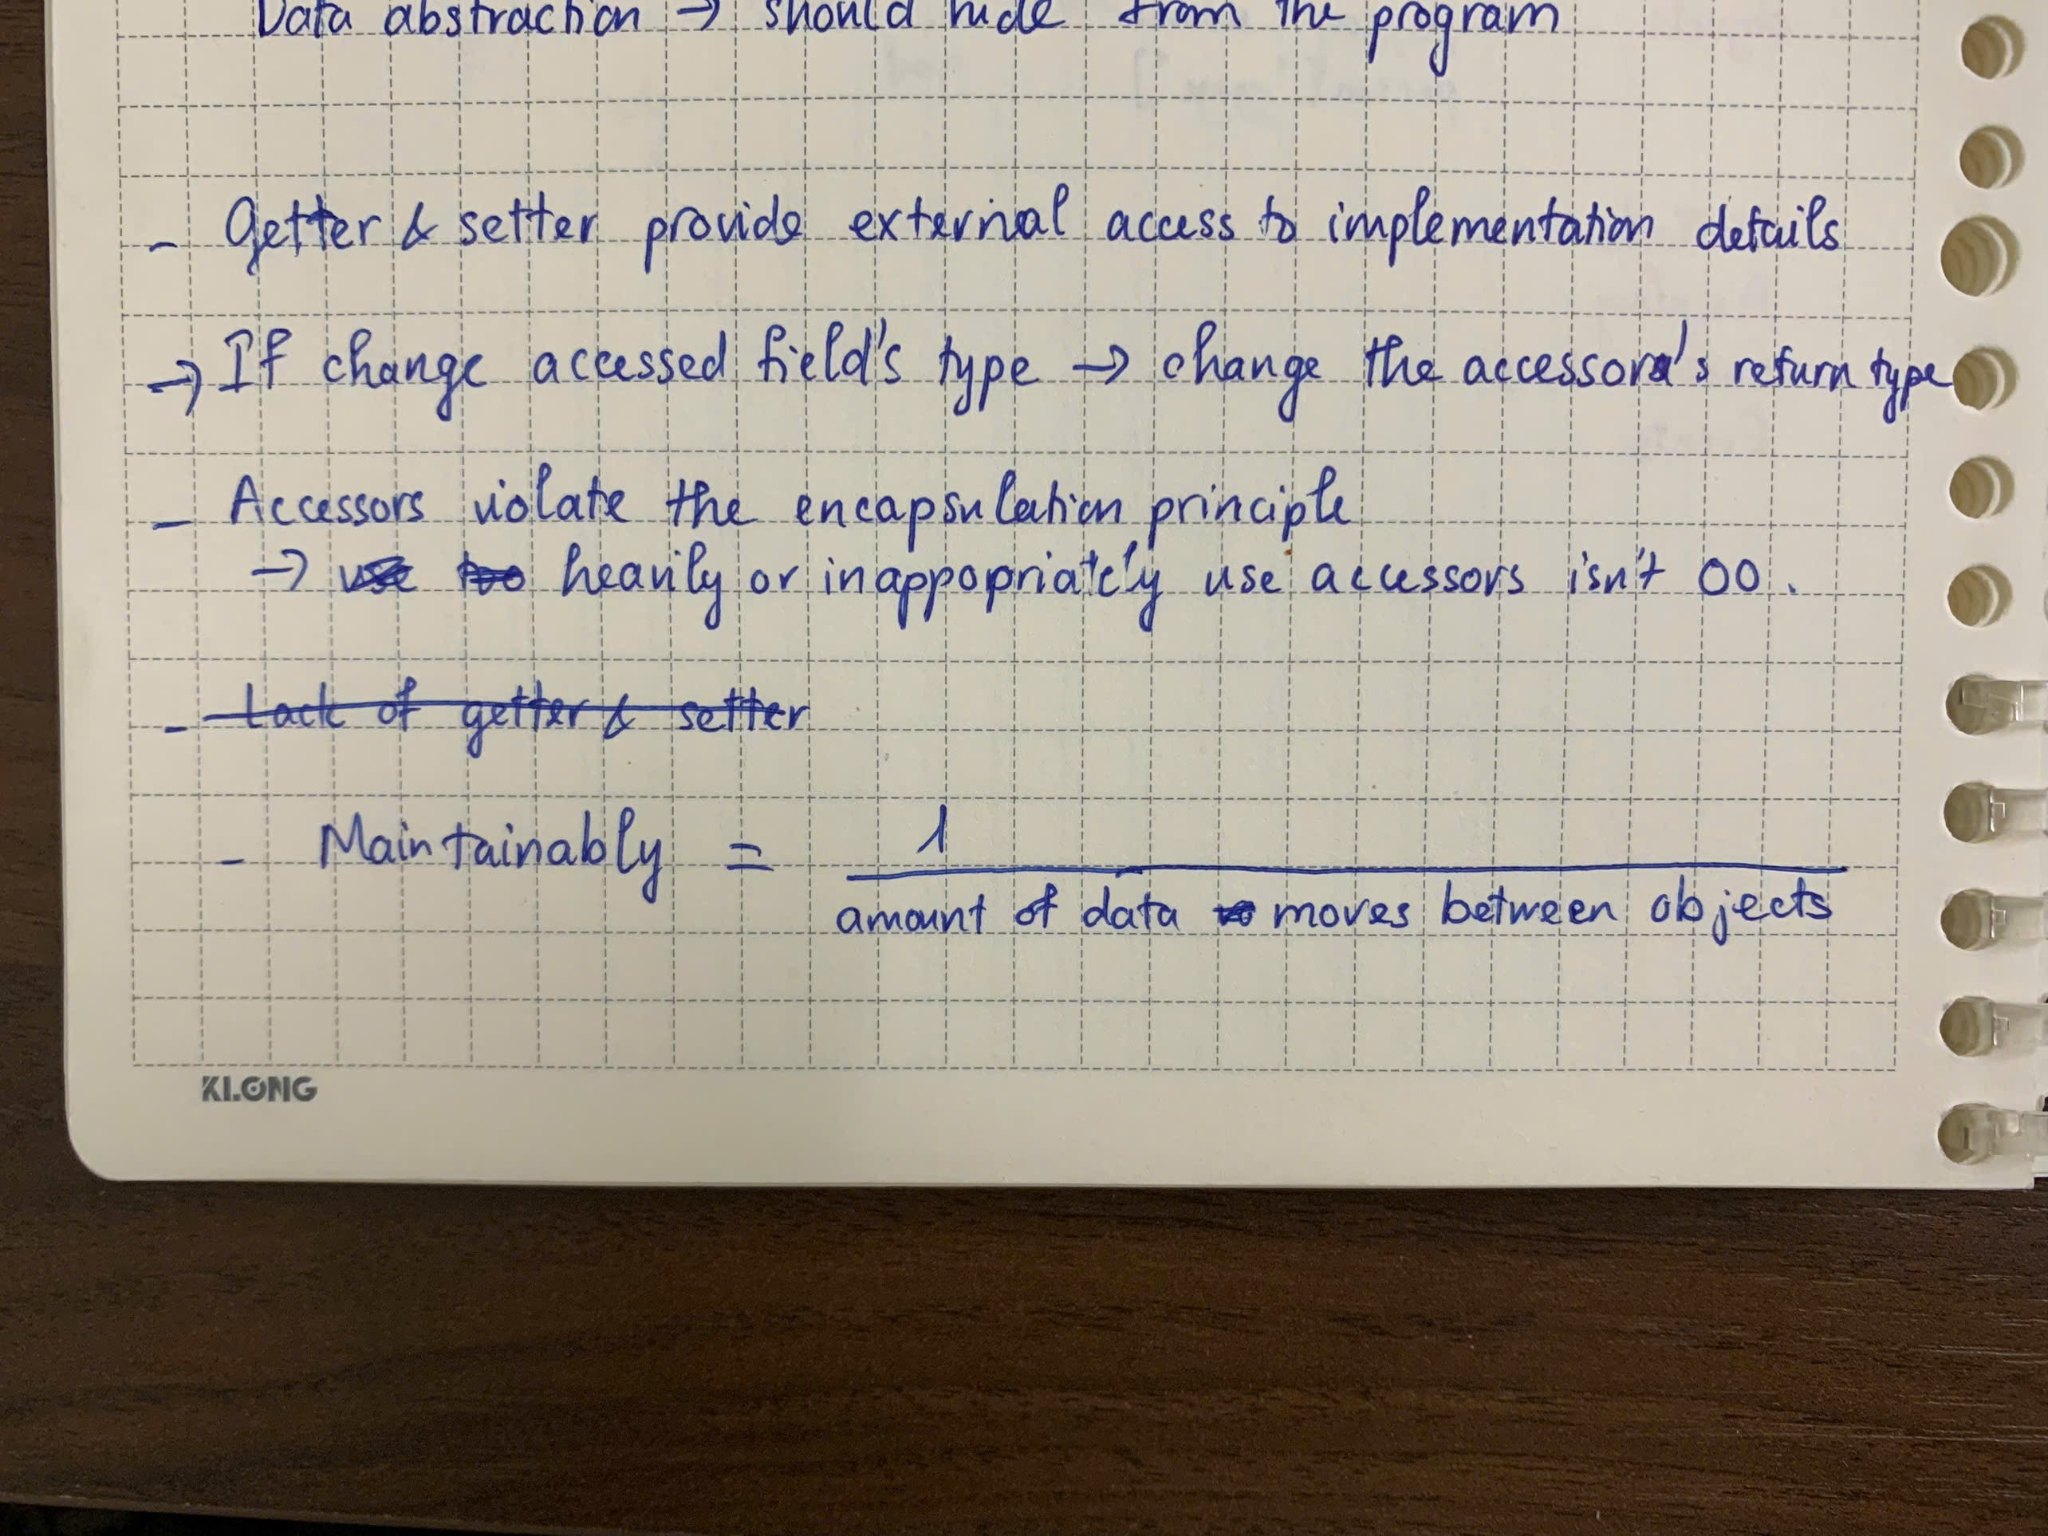 Data abstraction → should hide from the program
- Getter & setter provide external access to implementation details
→ If change accessed field's type → change the accessor's return type
- Accessors violate the encapsulation principle
→ use too heavily or inappopriately use accessors isn't OO.
- Lack of getter & setter
- Maintainably = 1
amount of data to moves between objects
KLONG